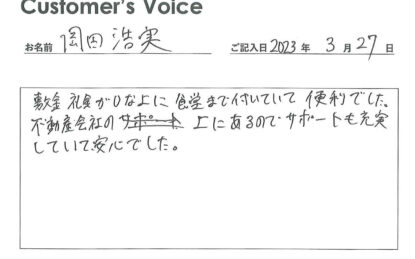 Customer's Voice
お名前 岡田 浩実 ご記入日 2023 年 3 月 27 日
敷金 礼金がひな上に 食堂まで付いていて 便利でした。
不動産会社の サポート 上にあるので サポートも充実
していて安心でした。